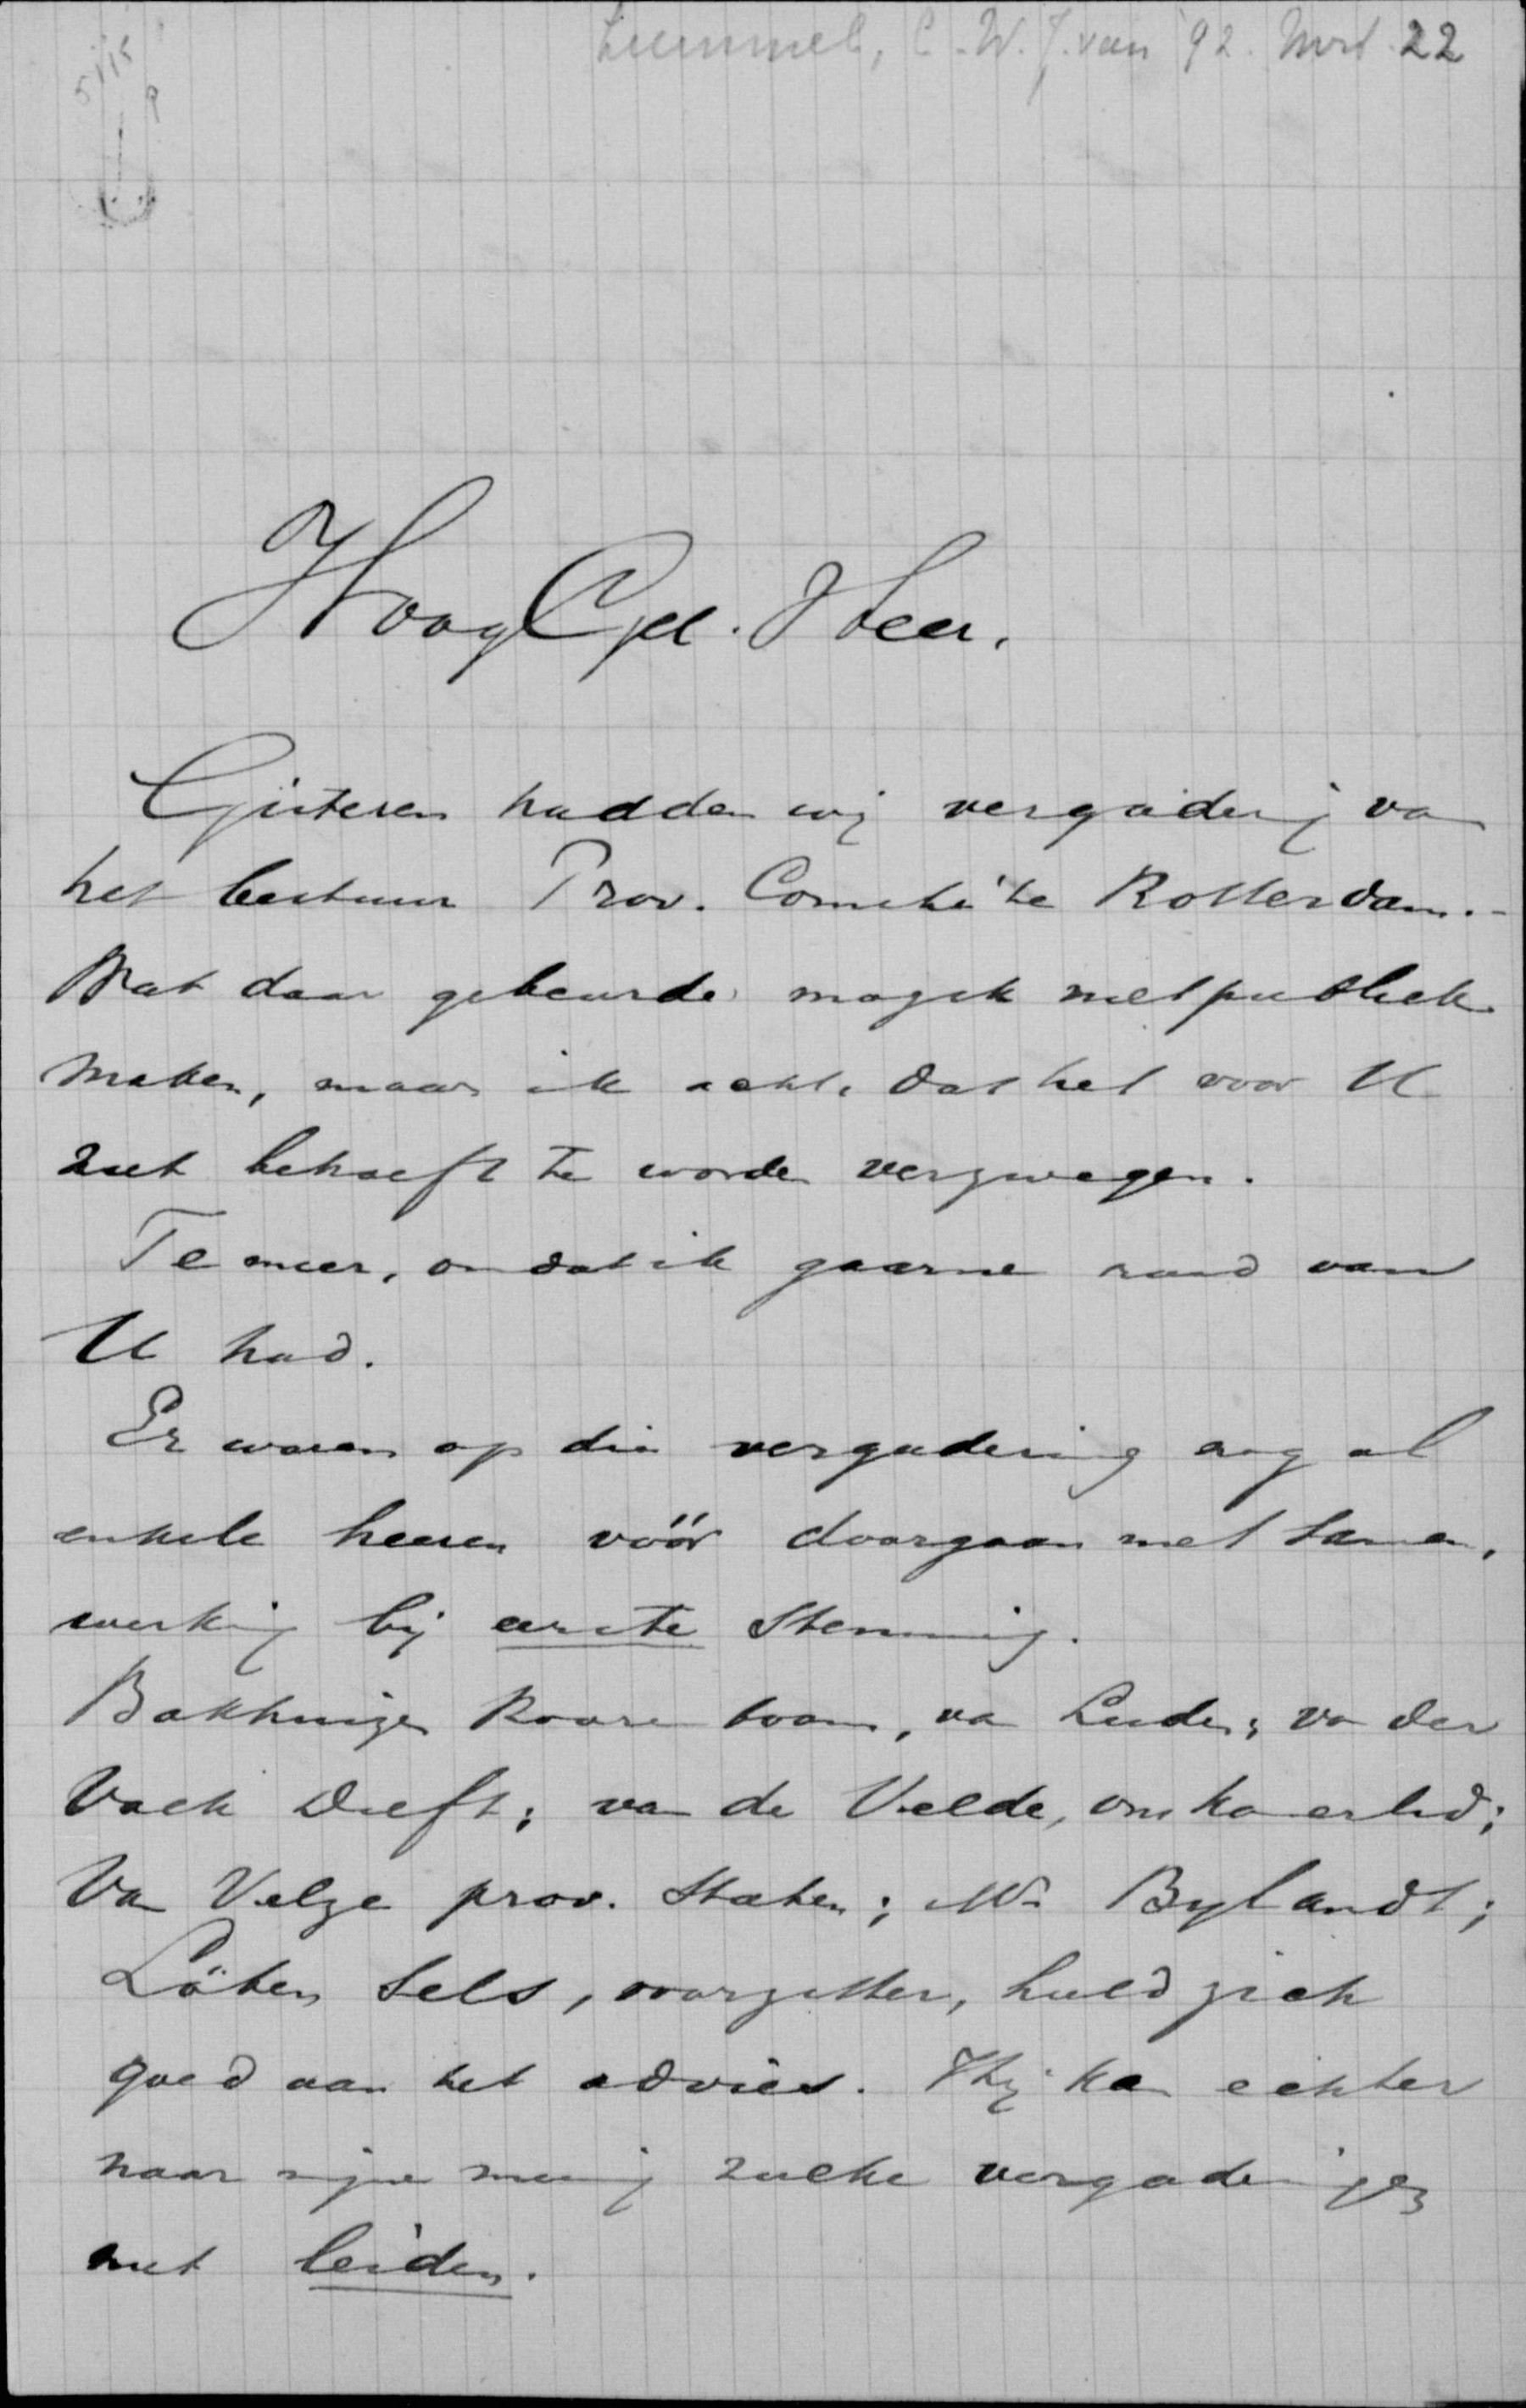 Lummel, C.W.J. van '92. Mrt 22
5115
HoogEgel. Heer.
Gisteren hadden wij vergadering van
het bestuur Prov. Comité te Rotterdam.-
Wat daar gebeurde mag ik niet publiek
maken, maar ik acht, dat het voor U
niet behoeft te worden verzwegen.
Te meer, omdat ik gaarne raad van
U had.
Er waren op die vergadering nog al
enkele heeren vóór doorgaan met samen,
werking bij eerste Stemming.
Bakhuizen Roozeboom, va Leiden; va der
Vaek Delft; van de Velde, ons kamerlid;
Van Velze prov. Staten; Mr Bylandt;
Löben Sels, voorzitter, hield zich
goed aan het advies. Hij kan echter
naar mijne meening zulke vergaderingen
niet leiden.